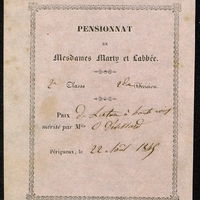 PENSIONNAT
DE
Mesdames Marty et Labbée.
2e Classe 2de Division
Prix de
mérité par Mlle
Périgueux, le 22 Août 1865